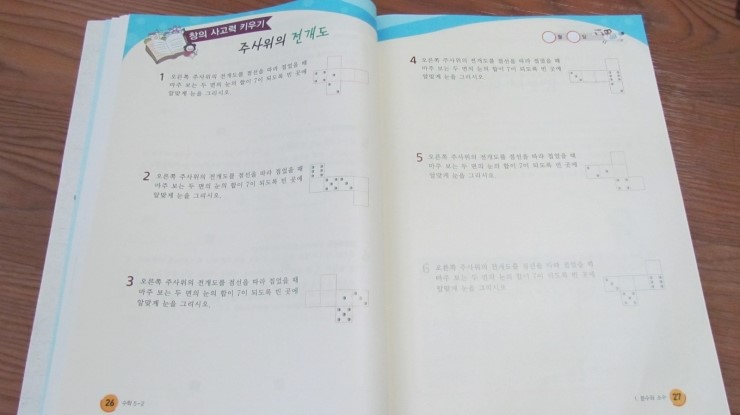 창의 사고력 키우기
주사위의 전개도
1 오른쪽 주사위의 전개도를 점선을 따라 접었을 때
마주 보는 두 면의 눈의 합이 7이 되도록 빈 곳에
알맞게 눈을 그리시오.
2 오른쪽 주사위의 전개도를 점선을 따라 접었을 때
마주 보는 두 면의 눈의 합이 7이 되도록 빈 곳에
알맞게 눈을 그리시오.
3 오른쪽 주사위의 전개도를 점선을 따라 접었을 때
마주 보는 두 면의 눈의 합이 7이 되도록 빈 곳에
알맞게 눈을 그리시오.
26 수학 5-2
월 일
4 오른쪽 주사위의 전개도를 점선을 따라 접었을 때
마주 보는 두 면의 눈의 합이 7이 되도록 빈 곳에
알맞게 눈을 그리시오.
5 오른쪽 주사위의 전개도를 점선을 따라 접었을 때
마주 보는 두 면의 눈의 합이 7이 되도록 빈 곳에
알맞게 눈을 그리시오.
6 오른쪽 주사위의 전개도를 점선을 따라 접었을 때
마주 보는 두 면의 눈의 합이 7이 되도록 빈 곳에
알맞게 눈을 그리시오.
27